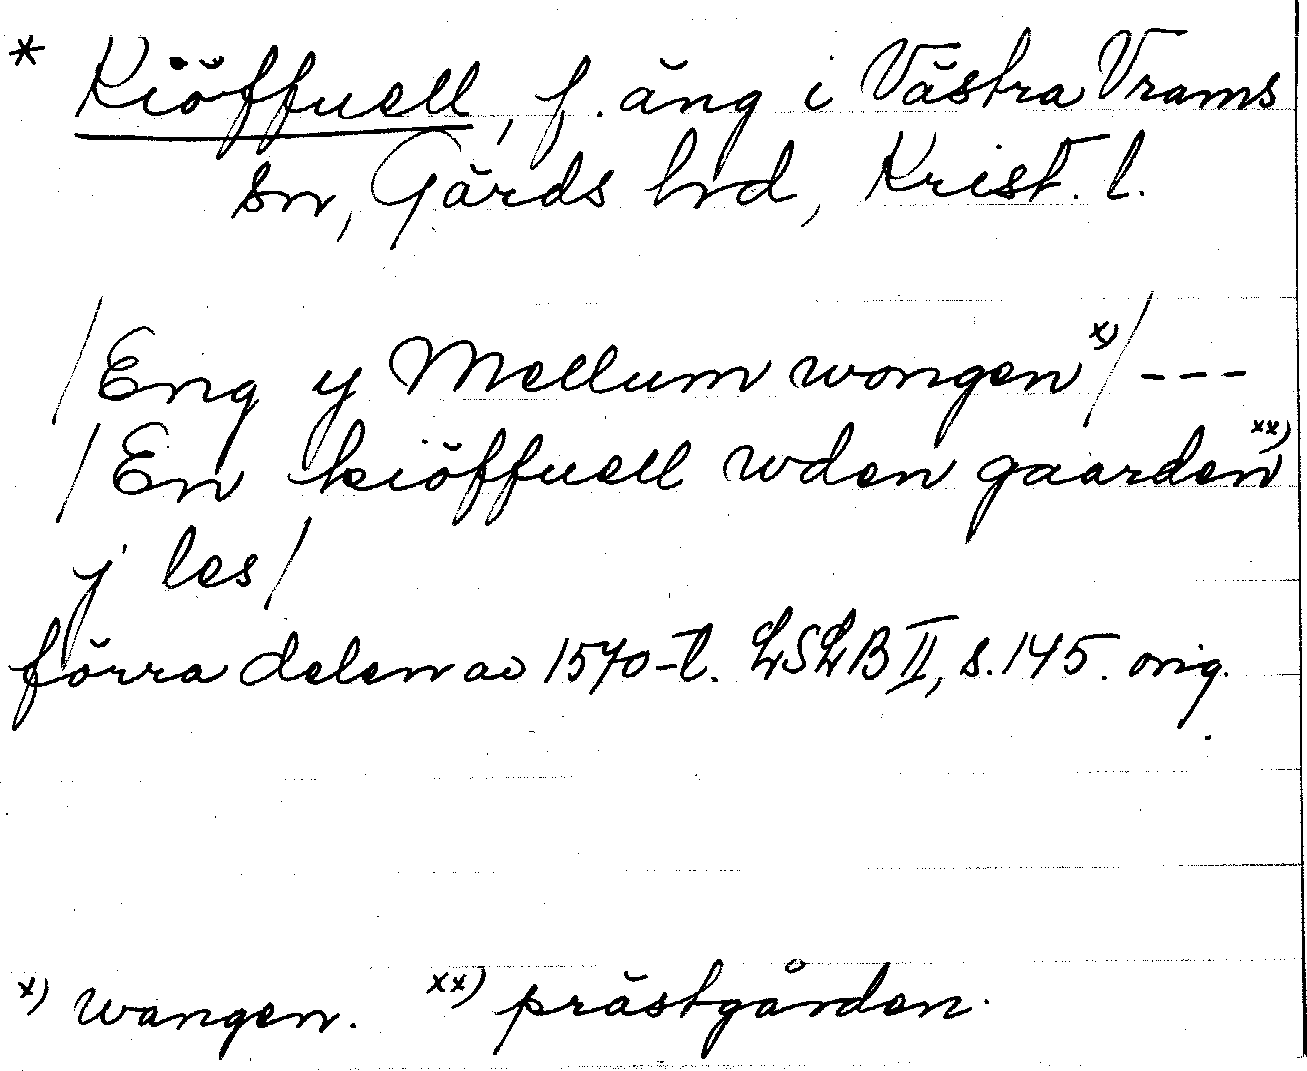 * Kiöffuell, f. äng i Västra Vrams
sn, Gärds hrd, Krist. l.
/Eng y Mellum wongen x)/ ---
/En kiöffuell wden gaarden xx)
y les/
förra delen av 1570-t. LSLB II, s. 145. orig.
x) wangen. xx) prästgården.